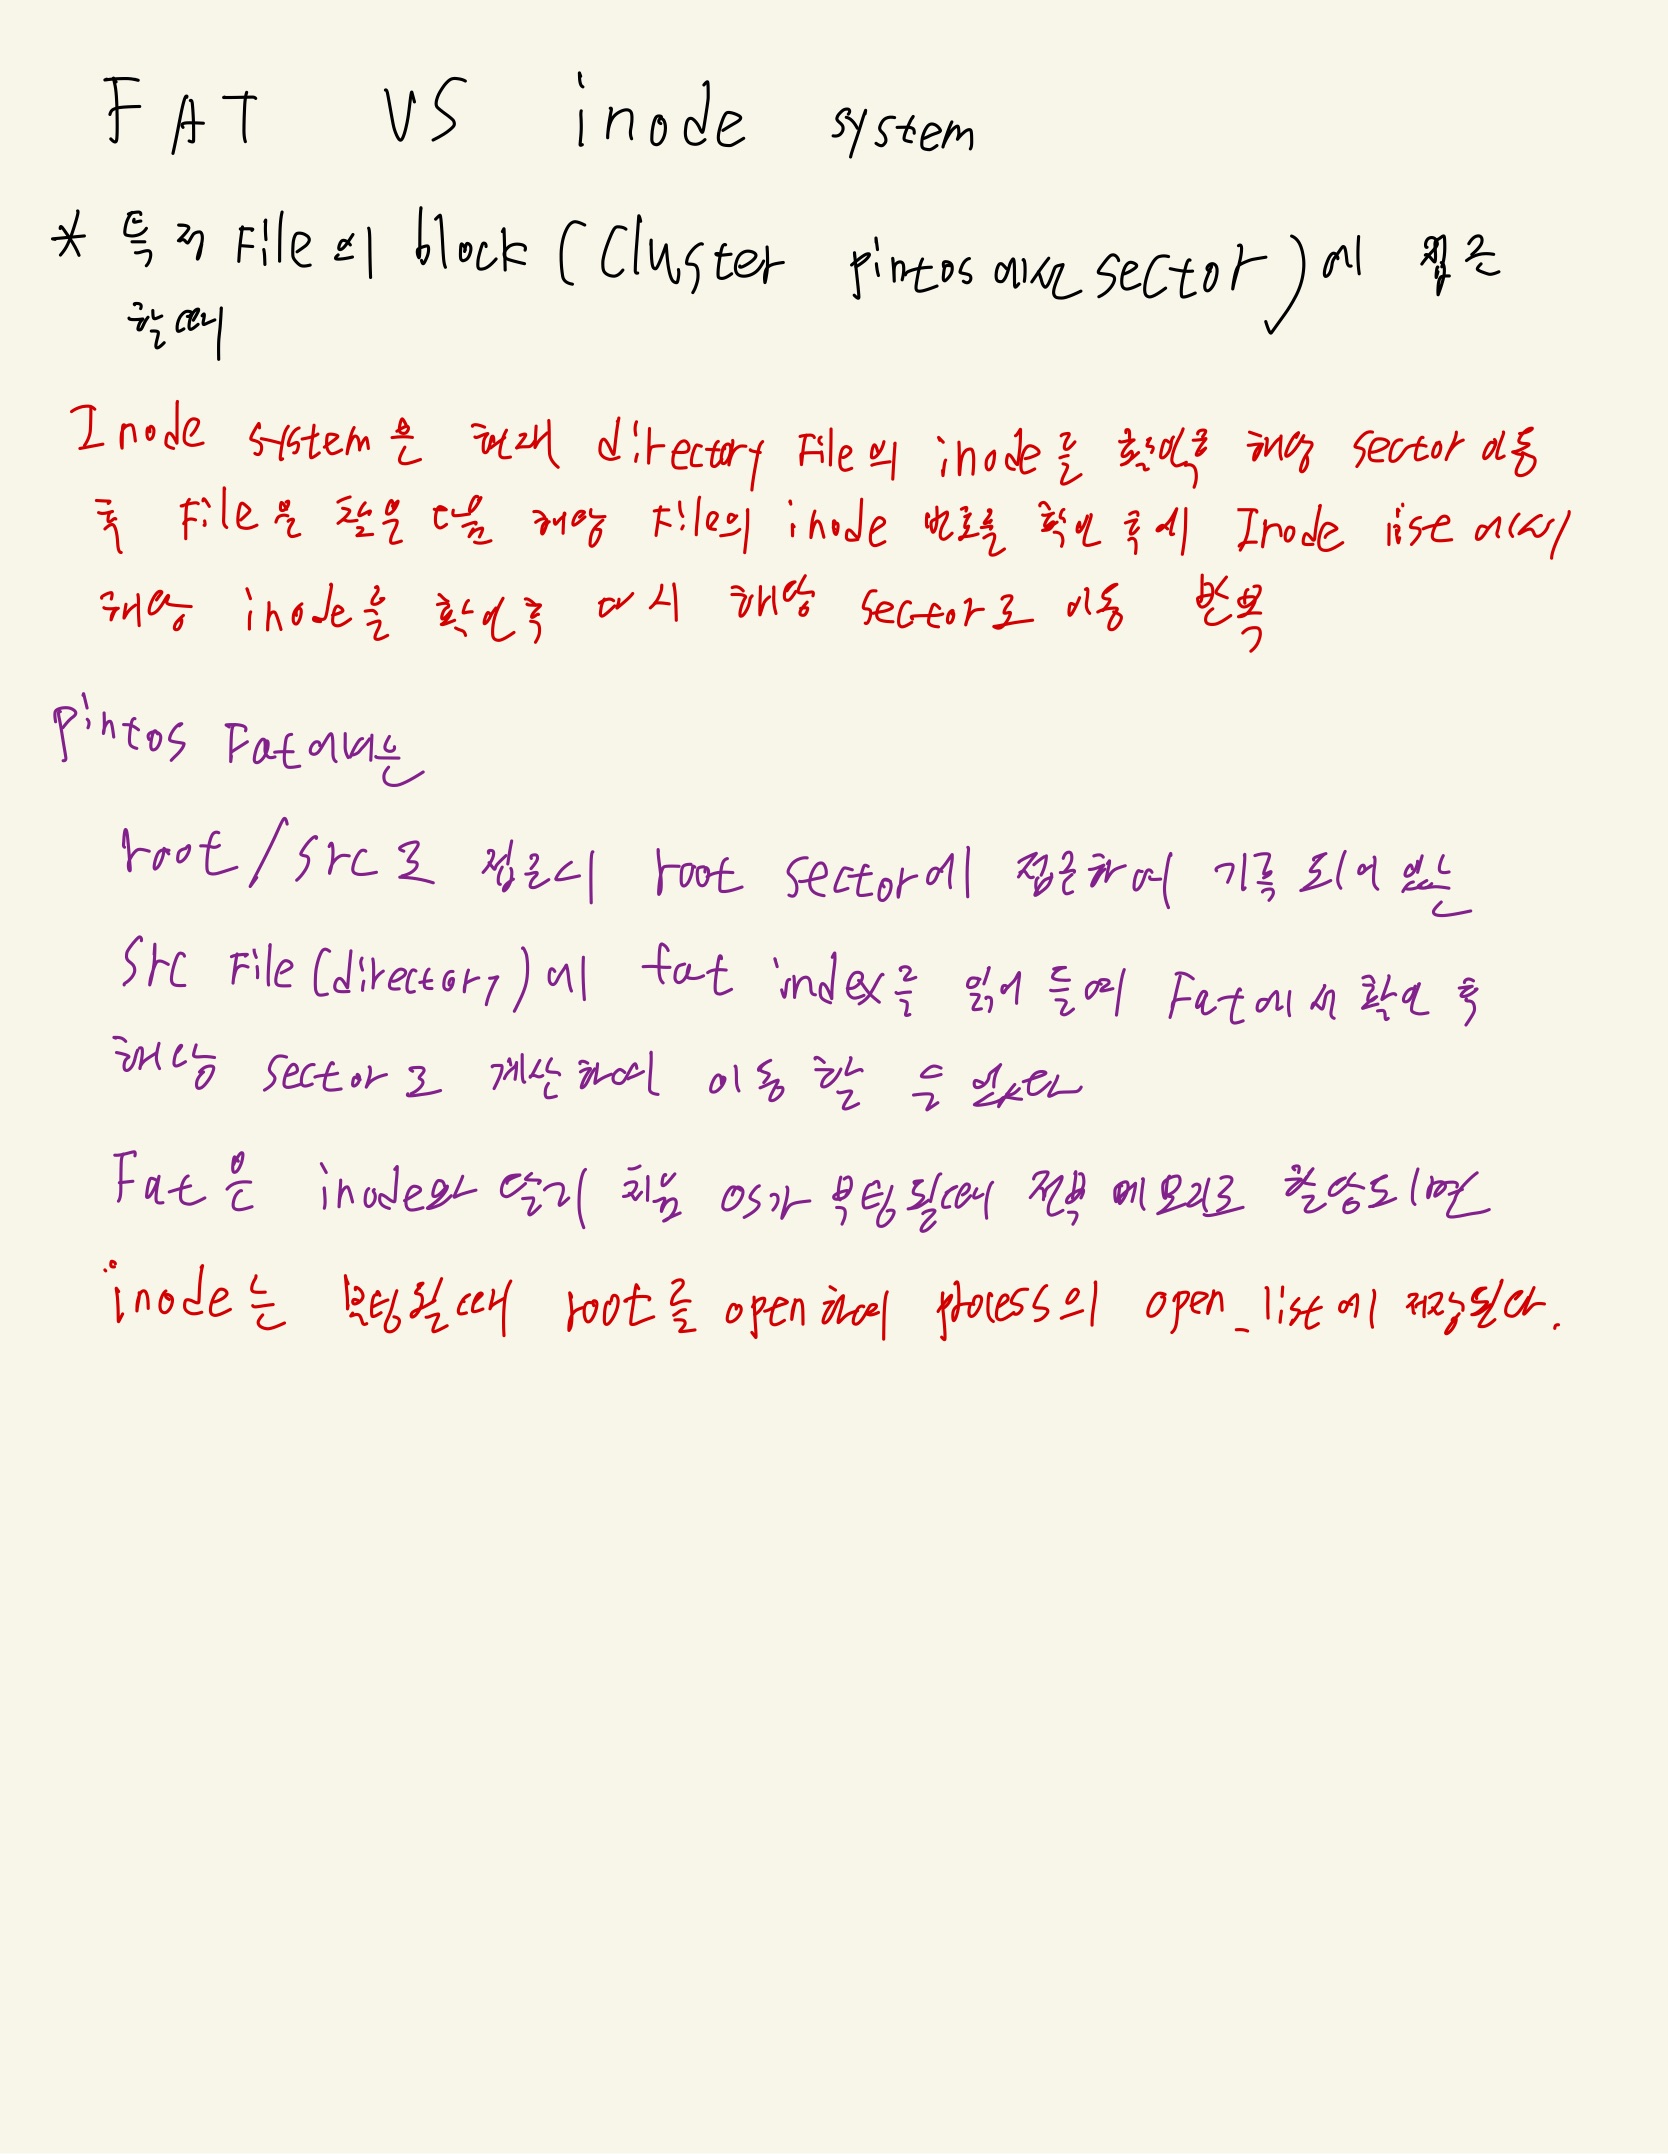 FAT VS inode system
* 특정 File의 block (Cluster pintos에선 sector)에 접근
할때
Inode system은 현재 directory File의 inode를 확인후 해당 sector 이동
후 File을 찾은 다음 해당 File의 inode 번호를 확인 후에 Inode list에서
해당 inode을 확인후 다시 해당 sector로 이동 반복
pintos Fat에서는
root/src로 접근시 root sector에 접근하여 기록 되어 있는
Src File(directory)에 fat index를 읽어 들여 Fat에서 확인 후
해당 sector로 계산하여 이동 할 수 있다
Fat은 inode와 달리 처음 OS가 부팅될때 전부 메모리로 할당되면
inode는 부팅될때 root를 open하여 process의 open_list에 저장된다.